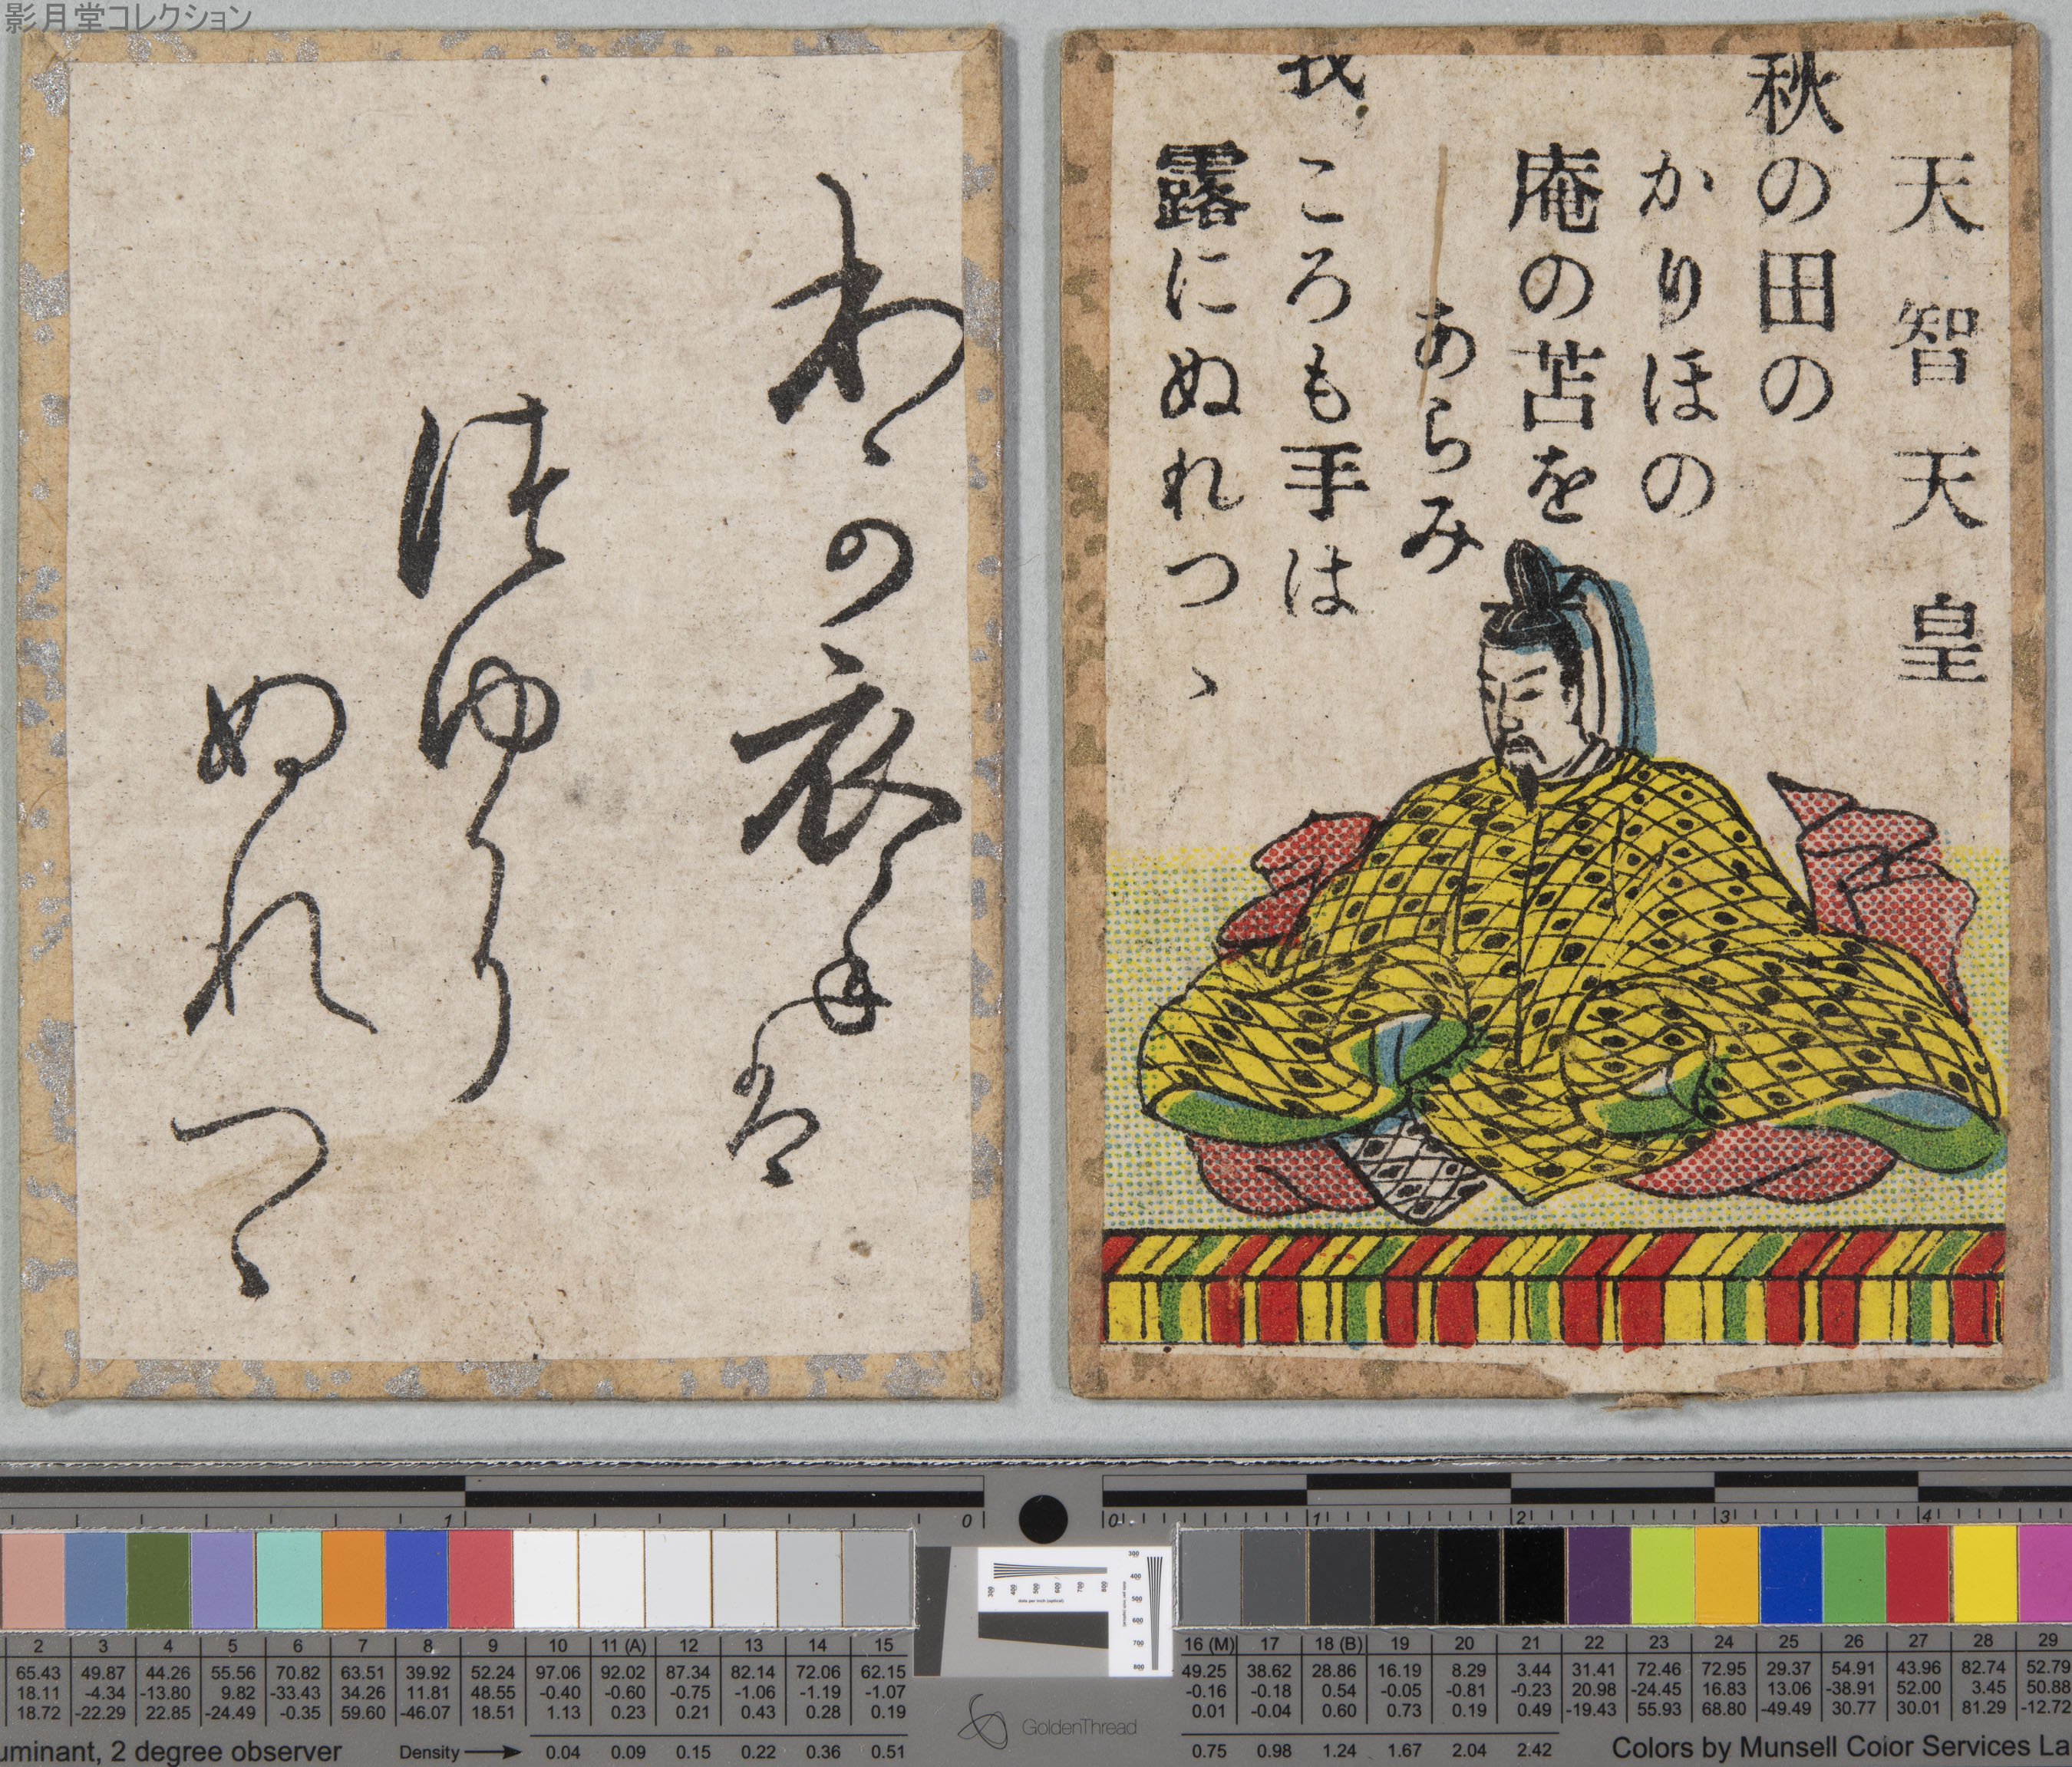 影月堂コレクション
天智天皇
秋の田の
かりほの
庵の苫を
あらみ
我ころも手は
露にぬれつゝ
わか衣手は
つゆに
ぬれつゝ
1 0 0 1 2 3 4
2 3 4 5 6 7 8 9 10 11 (A) 12 13 14 15
65.43 49.87 44.26 55.56 70.82 63.51 39.92 52.24 97.06 92.02 87.34 82.14 72.06 62.15
18.11 -4.34 -13.80 9.82 -33.43 34.26 11.81 48.55 -0.40 -0.60 -0.75 -1.06 -1.19 -1.07
18.72 -22.29 22.85 -24.49 -0.35 59.60 -46.07 18.51 1.13 0.23 0.21 0.43 0.28 0.19
uminant, 2 degree observer
Density 0.04 0.09 0.15 0.22 0.36 0.51
300 400 500 600 700 800
dots per inch (optical)
300 400 500 600 700 800
GoldenThread
16 (M) 17 18 (B) 19 20 21 22 23 24 25 26 27 28 29
49.25 38.62 28.86 16.19 8.29 3.44 31.41 72.46 72.95 29.37 54.91 43.96 82.74 52.79
-0.16 -0.18 0.54 -0.05 -0.81 -0.23 20.98 -24.45 16.83 13.06 -38.91 52.00 3.45 50.88
0.01 -0.04 0.60 0.73 0.19 0.49 -19.43 55.93 68.80 -49.49 30.77 30.01 81.29 -12.72
0.75 0.98 1.24 1.67 2.04 2.42
Colors by Munsell Color Services La